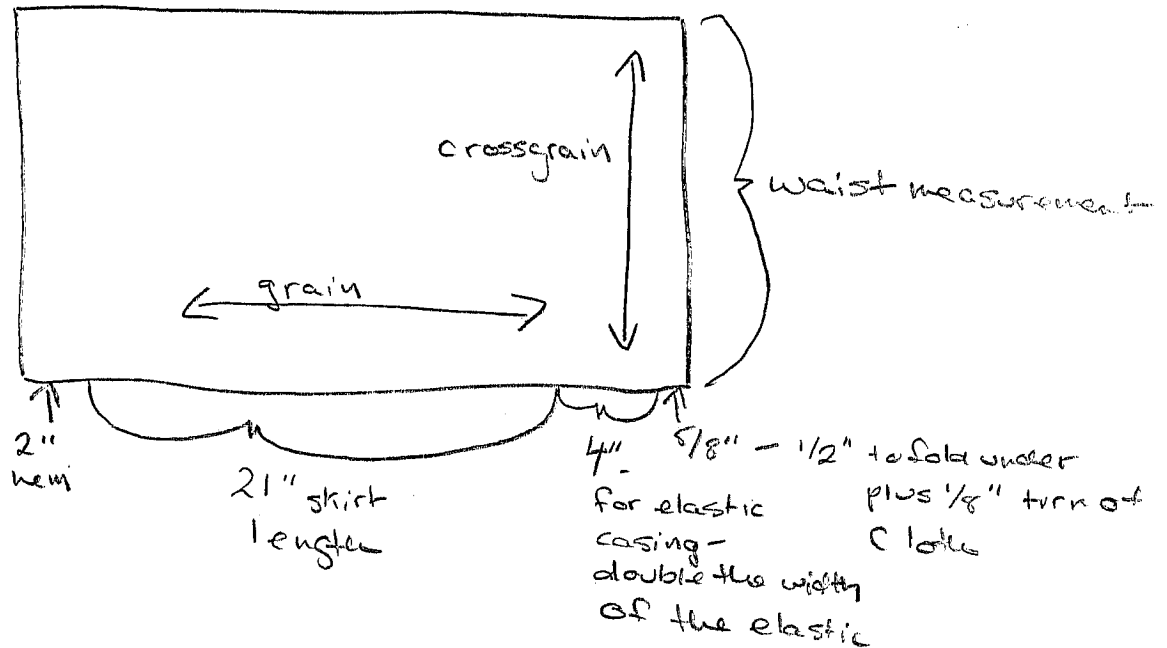 crossgrain
waist measurement
grain
2"
hem
21" skirt
length
4"
for elastic
casing-
double the width
of the elastic
5/8" - 1/2" to fold under
plus 1/8" turn of
cloth